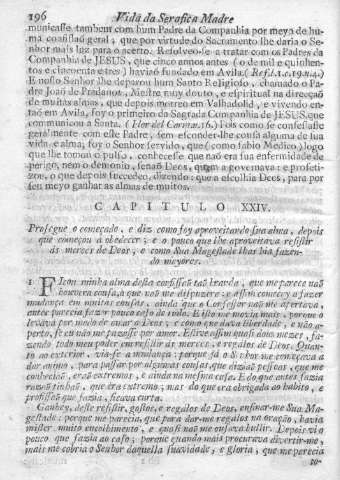 196 Vida da Serafica Madre
municasse tambem com hum Padre da Companhia por meyo de hu-
ma confissaõ geral; que por virtude do Sacramento lhe daria o Se-
nhor mais luz para o acerto. Resolveo-se a tratar com os Padres da
Companhia de JESUS, que cinco annos antes (o de mil e quinhen-
tos e cincoenta e tres) haviaõ fundado em Avila.
E nosso Senhor lhe deparou hum Santo Religioso, chamado o Pa-
dre Joaõ de Pradanos, Mestre muy douto, e espiritual na direcçaõ
de muitas almas, que depois morreo em Valhadolid, e vivendo en-
taõ em Avila, foy o primeiro da Sagrada Companhia de JESUS que
communicou a Santa. Pois como se confessasse
geralmente com este Padre, sem esconder-lhe cousa alguma de sua
vida e alma, foy o Senhor servido, que (como sabio Medico) logo
que lhe tomou o pulso, conhecesse que naõ era sua enfermidade de
perigo, nem o demonio, senaõ Deos, quem a governava: e profeti-
zou, o que depois succedeo, dizendo: que a escolhia Deos, para por
seu meyo ganhar as almas de muitos.
CAPITULO XXIV.
Prosegue o começado, e diz como foy aproveitando sua alma, depois
que começou a obedecer; e o pouco que lhe aproveitava resistir
ás mercês de Deos, e como Sua Magestade lhas hia fazen-
do mayores.
1 Ficou minha alma desta confissaõ taõ branda, que me parece naõ
houvera cousa a que me naõ dispuzera; e assim comecey a fazer
mudança em muitas cousas, ainda que o Confessor naõ me apertava,
antes parecia fazer pouco caso de tudo. E isto me movia mais, porque o
levava por modo de amar a Deos; e como que dava liberdade, e naõ a-
perto, se eu naõ me puzesse por amor. Estive assim quasi dous mezes, fa-
zendo todo meu poder em resistir ás mercês, e regalos de Deos. Quan-
to ao exterior, via-se a mudança: porque já o Senhor me começava a
dar animo, para passar por algumas cousas, que diziaõ pessoas, que me
conheciaõ, eraõ extremos, e ainda na mesma casa. E do que antes fazia
razaõ tinhaõ, que era extremo; mas do que era obrigada ao habito, e
profissaõ que fazia, ficava curta.
Ganhey, deste resistir, gostos, e regalos de Deos, ensinar-me Sua Ma-
gestade; porque me parecia, que para dar-me regalos na oração, havia
mister muito encolhimento, e quasi naõ me ousava bullir. Depois vi o
pouco que fazia ao caso; porque quando mais procurava divertir-me,
mais me cobria o Senhor daquella suavidade, e gloria, que me parecia